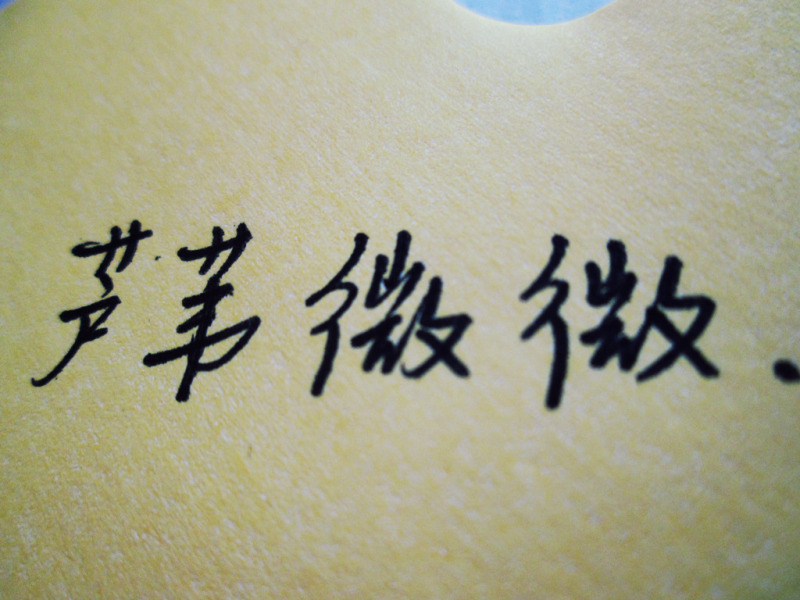 芦苇微微.